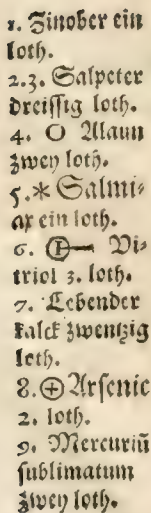 1. Zinober ein
loth.
2.3. Salpeter
dreissig loth.
4. O Alaun
zwey loth.
5.* Salmi-
ax ein loth.
6. Vi-
triol 3. loth.
7. Lebender
kalck zwentzig
loth.
8.⊕ Arsenic
2. loth.
9. Mercuriū
sublimatum
zwey loth.